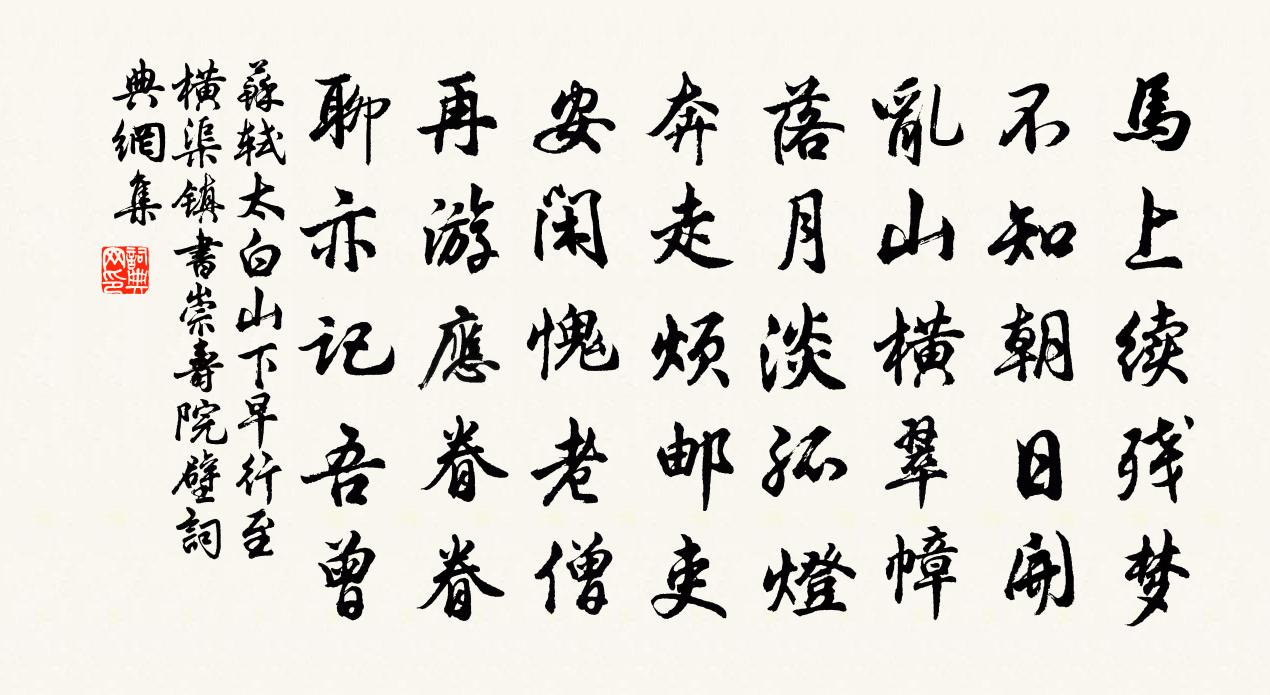 馬上续残梦
不知朝日開
亂山橫翠幛
落月淡孤燈
奔走烦邮吏
安闲愧老僧
再游應眷眷
聊亦记吾曾
蘇轼太白山下早行至
橫渠镇書崇壽院壁詞
典網集
詞典
网印